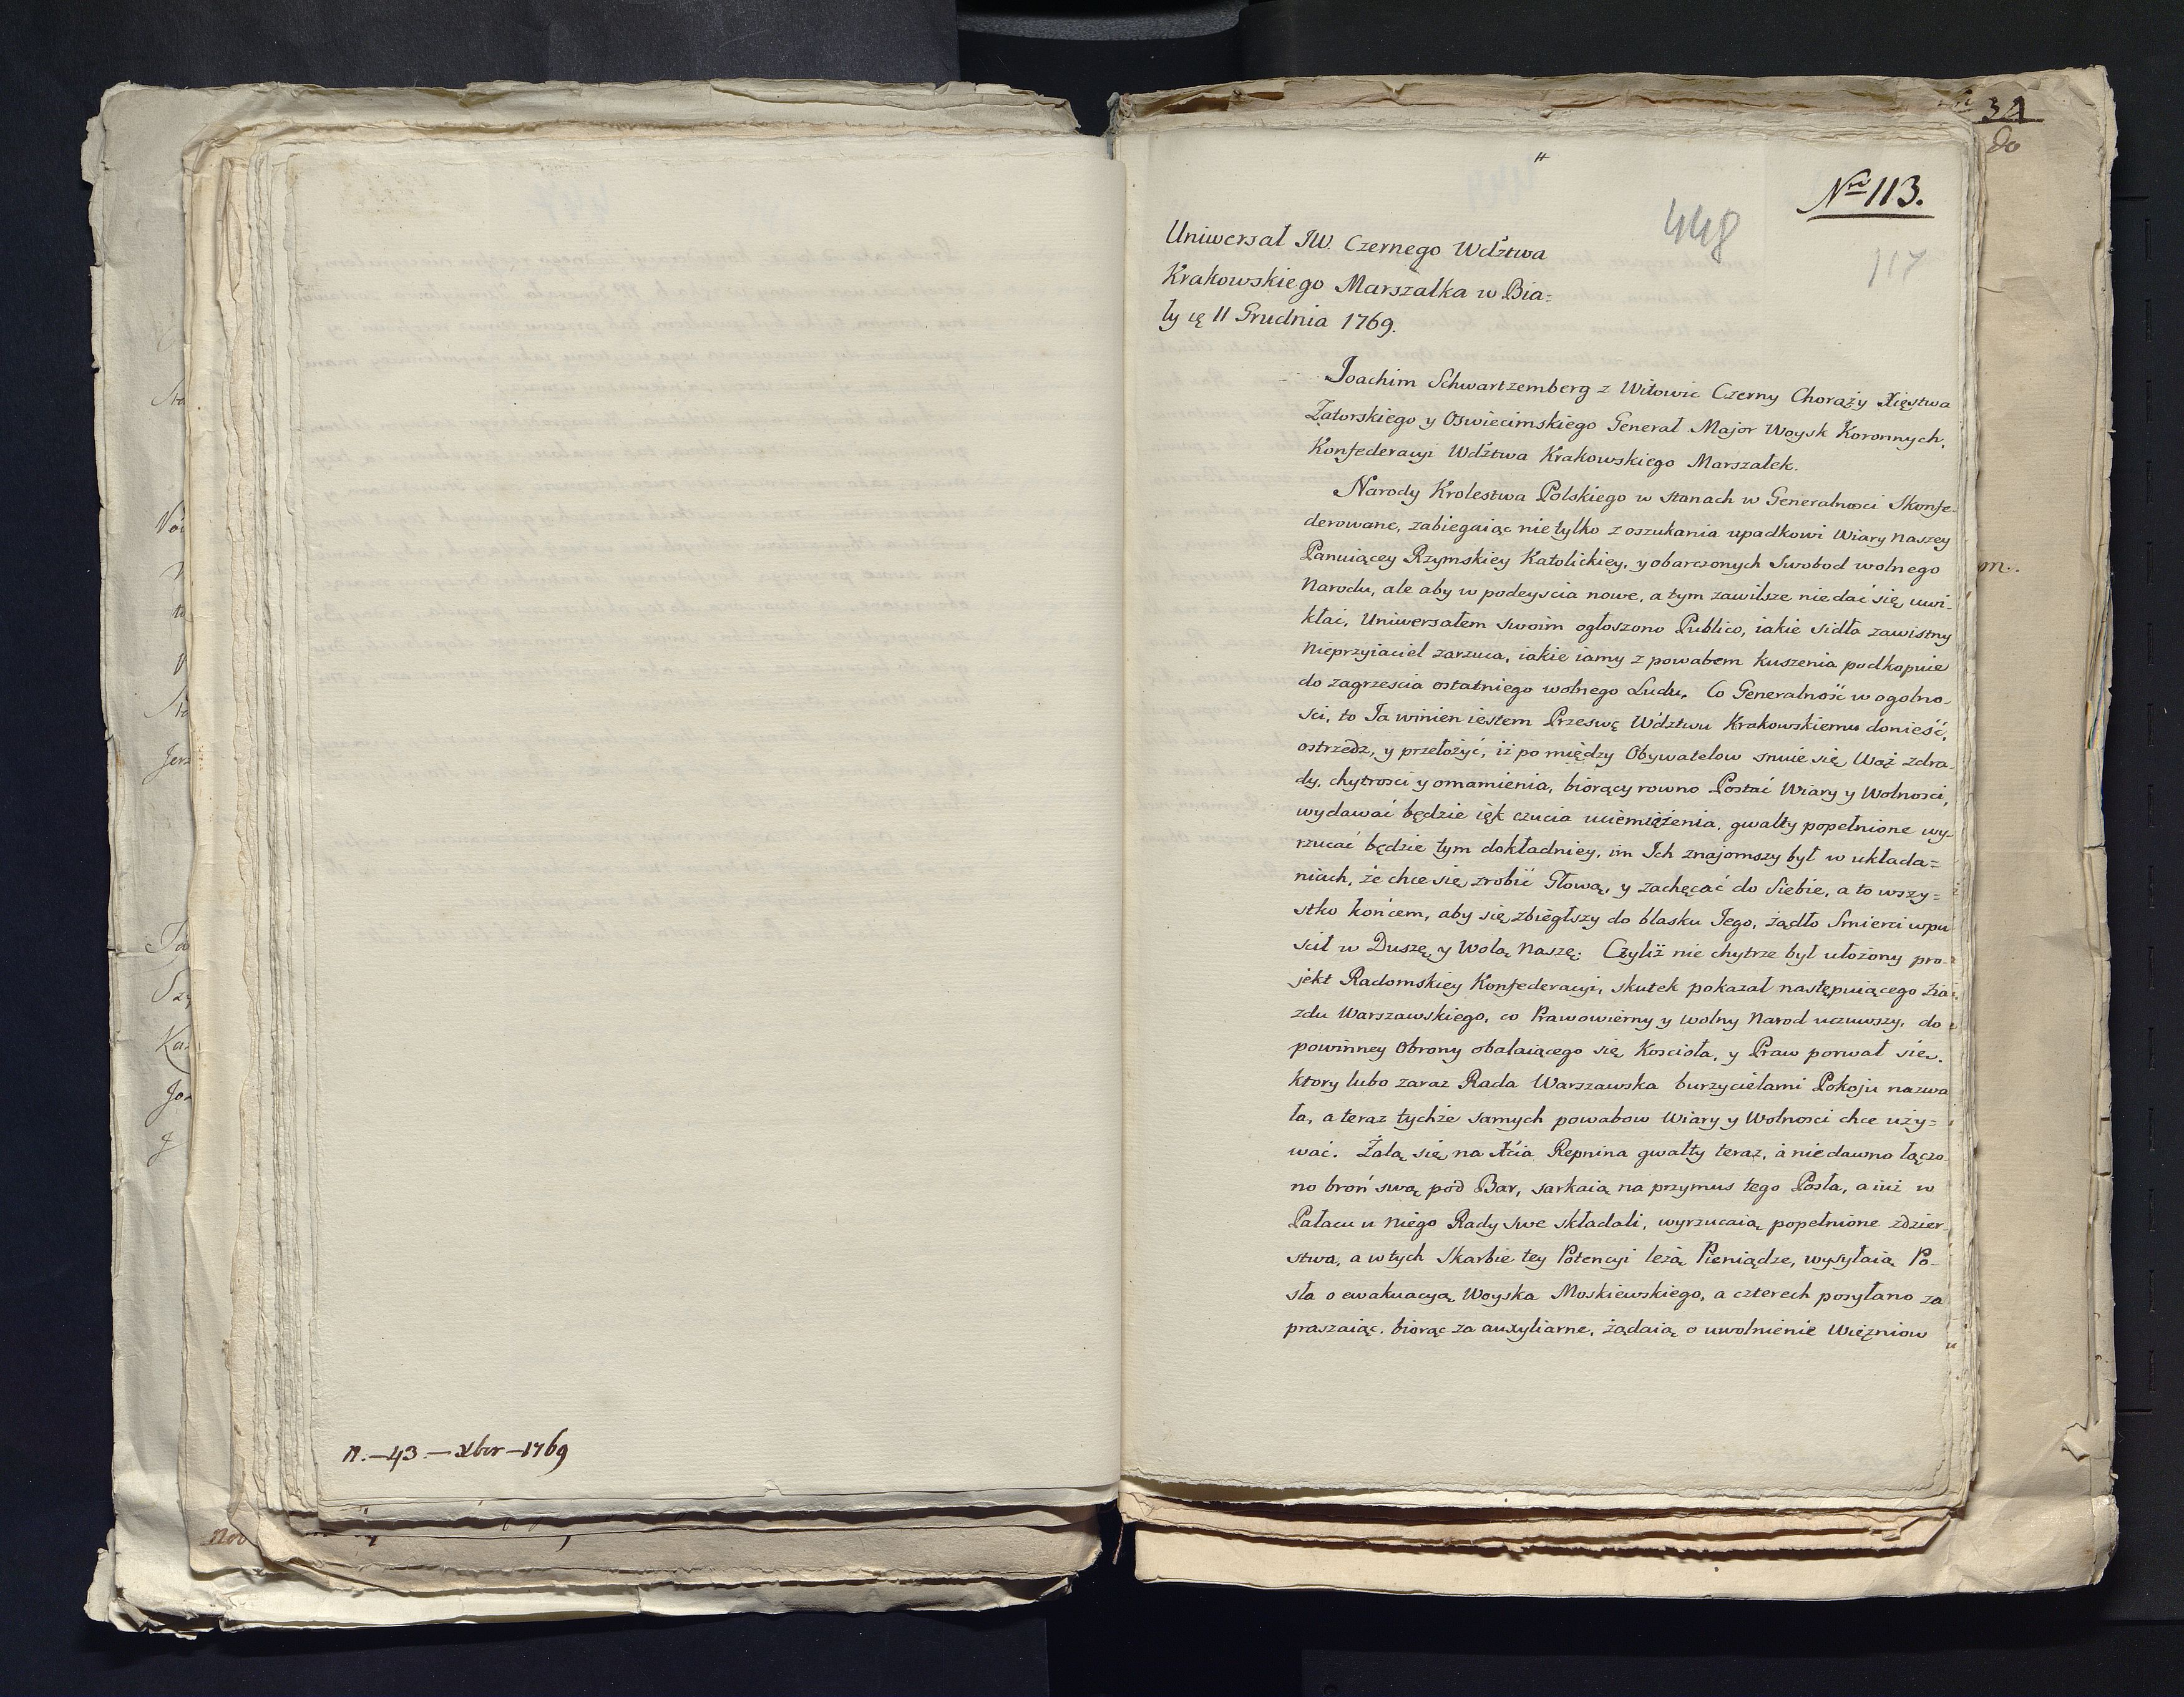 n.—43.—Xbr—1769
Nro 113.
448
117
Uniwersał JW. Czernego Wdztwa
Krakowskiego Marszałka w Bia=
ły ię 11 Grudnia 1769.
Joachim Schwartzemberg z Witowic Czerny Chorąży Xięstwa
Zatorskiego y Oswiecimskiego Generał Major Woysk Koronnych,
Konfederacyi Wdztwa Krakowskiego Marszałek.
Narody Krolestwa Polskiego w stanach w Generalnosci Skonfe-
derowane, zabiegaiąc nietylko z oszukania upadkowi Wiary naszey
Panuiącey Rzymskiey Katolickiey, y obarczonych Swobod wolnego
Narodu, ale aby w podeyscia nowe, a tym zawilsze niedać się uwi-
kłać, Uniwersałem swoim ogłoszono Publico, iakie sidła zawistny
Nieprzyiaciel zarzuca, iakie iamy z powabem kuszenia podkopuie
do zagrzescia ostatniego wolnego Ludu. Co Generalność w ogolno-
sci, to Ja winien iestem Przeswę Wdztwu Krakowskiemu donieść,
ostrzedz, y przełożyć, iż pomiędzy Obywatelow snuie się Wąż zdra-
dy, chytrosci y omamienia, biorący rowno Postać Wiary y Wolnosci,
wydawać będzie ięk czucia uciemiężenia, gwałty popełnione wy-
rzucać będzie tym dokładniey, im Ich znajomszy był w układa=
niach, że chce się zrobić Głową, y zachęcać do Siebie, a to wszy=
stko końcem, aby się zbiegłszy do blasku Jego, żądło Smierci wpu
scił w Duszę, y Wolą Naszę; Czyliż nie chytrze był ułożony pro-
jekt Radomskiey Konfederacyi, skutek pokazał następuiącego Zia-
zdu Warszawskiego, co Prawowierny y wolny Narod uczuwszy, do
powinney Obrony obalaiącego się Koscioła, y Praw porwał się.
ktory lubo zaraz Rada Warszawska burzycielami Pokoju nazwa
ła, a teraz tychże samych powabow Wiary y Wolnosci chce uży=
wać. Żalą się na Xcia Repnina gwałty teraz, a niedawno łączo-
no broń swą pod Bar, sarkaią na przymus tego Posła, a iuż w
Pałacu u niego Rady swe składali, wyrzucaią popełnione zdzier-
stwa, a w tych Skarbie tey Potencyi leżą Pieniądze, wysyłaią Po-
sła o ewakuacyą Woyska Moskiewskiego, a czterech posyłano za
praszaiąc. biorąc za auxyliarne, żądaią o uwolnienie Więzniow